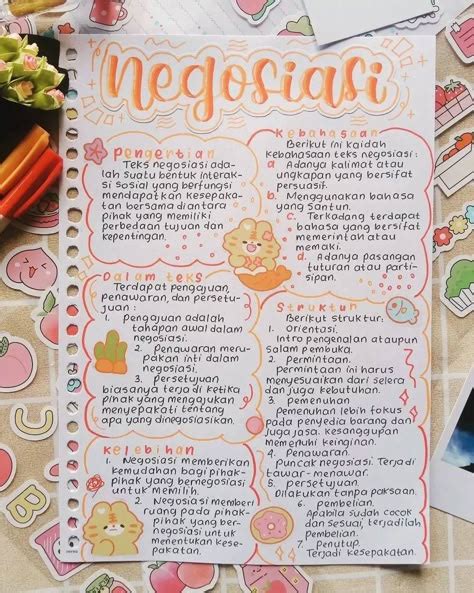 negosiasi
Pengertian
Teks negosiasi ada-
lah suatu bentuk interak-
si sosial yang berfungsi
mendapatkan kesepaka-
tan bersama diantara
pihak yang memiliki
perbedaan tujuan dan
kepentingan.
Dalam teks
Terdapat pengajuan,
penawaran, dan persetu-
juan :
1. pengajuan adalah
tahapan awal dalam
negosiasi.
2. Penawaran meru-
pakan inti dalam
negosiasi.
3. persetuyan
biasanya terjadi ketika
pihak yang mengajukan
menyepakati tentang
apa yang dinegosiasikan.
Kelebihan
1. Negosiasi memberikan
kemudahan bagi pihak-
pihak yang bernegosiasi
untuk memilih.
2. Negosiasi memberi
ruang pada pihak-
pihak yang ber-
negosiasi untuk
menentukan kese-
pakatan.
Kebahasaan
Berikut ini kaidah
kebahasaan teks negosiasi :
a. Adanya kalimat atau
ungkapan yang bersifat
persuasif.
b. Menggunakan bahasa
yang santun.
c. Terkadang terdapat
bahasa yang bersifat
memerintah atau
memaki.
d. Adanya pasangan
tuturan atau parti-
sipan.
Struktur
Berikut struktur:
1. Orientasi.
Intro pengenalan ataupun
salam pembuka.
2. permintaan.
Permintaan ini harus
menyesuaikan dari selera
dan juga kebutuhan.
3. pemenuhan
Pemenuhan lebih fokus
pada penyedia barang dan
juga jasa. kesanggupan
memenuhi keinginan.
4. Penawaran.
Puncak negosiasi. Terjadi
tawar-menawar.
5. persetuyuan.
Dilakukan tanpa paksaan.
6. pembelian.
Apabila sudah cocok
dan sesuai, terjadilah
Pembelian.
7. Penutup.
Terjadi kesepakatan.